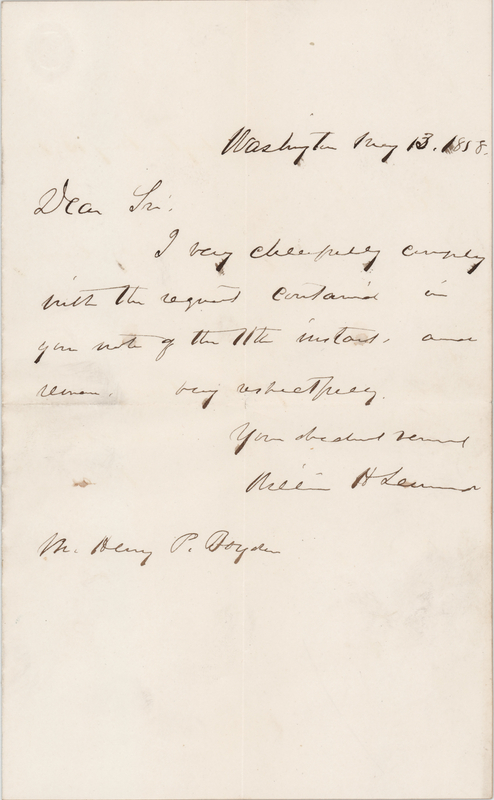 Washington May 13. 1858.
Dear Sir.
I very cheerfully comply
with the request contained in
your note of the 11th instant, and
remain, very respectfully.
Your obedient servant
William H
Mr. Henry P. Boyden